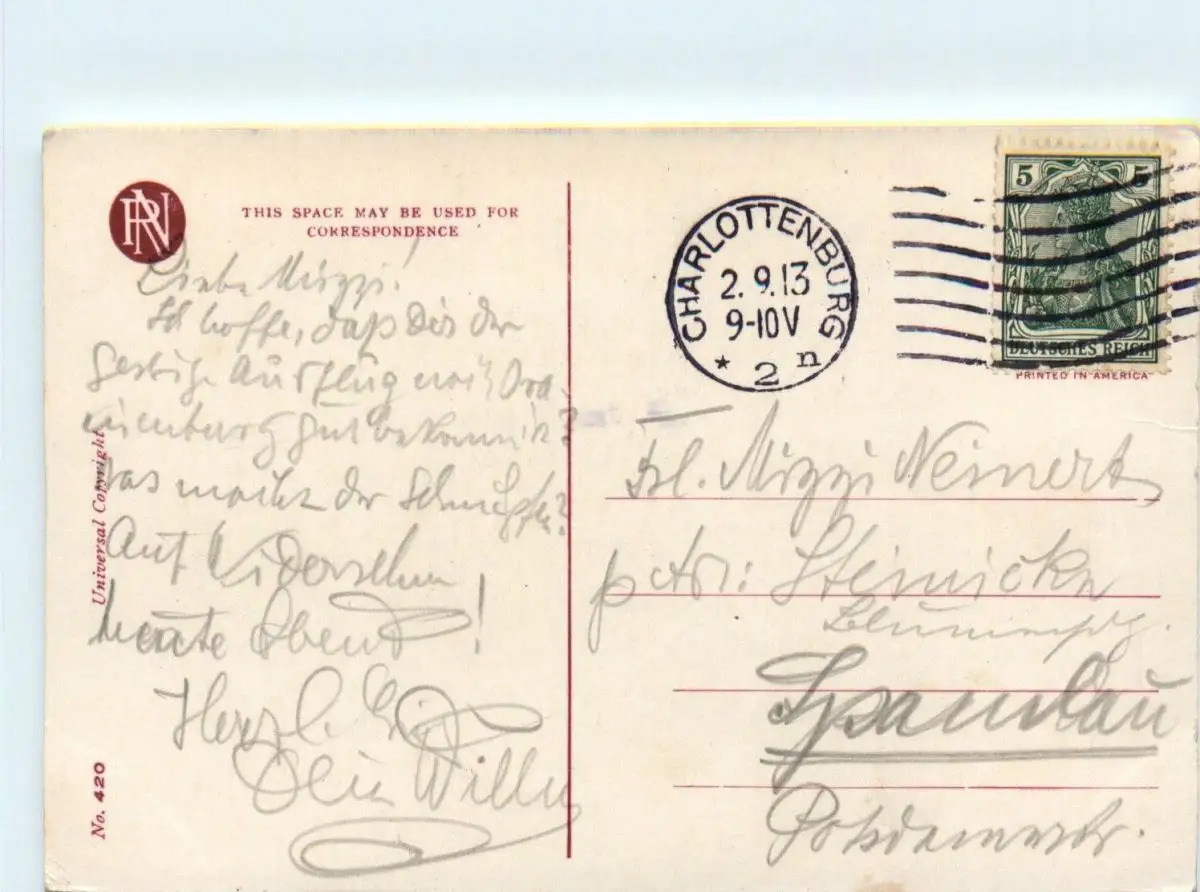 RN
THIS SPACE MAY BE USED FOR
CORRESPONDENCE
Liebe Mizzi!
Ich hoffe, daß Dir der
gestrige Ausflug nach Ora
nienburg gut bekommen?
Was macht der
Auf Widersehen
heute Abend!
Herzl.
Dein Willy
Universal Copyright
No. 420
CHARLOTTENBURG
2.9.13
9-10V
* 2 n
5 5
DEUTSCHES REICH
PRINTED IN AMERICA
Frl. Mizzi Neinert
Steinicke
Spandau
Potsdamerstr.